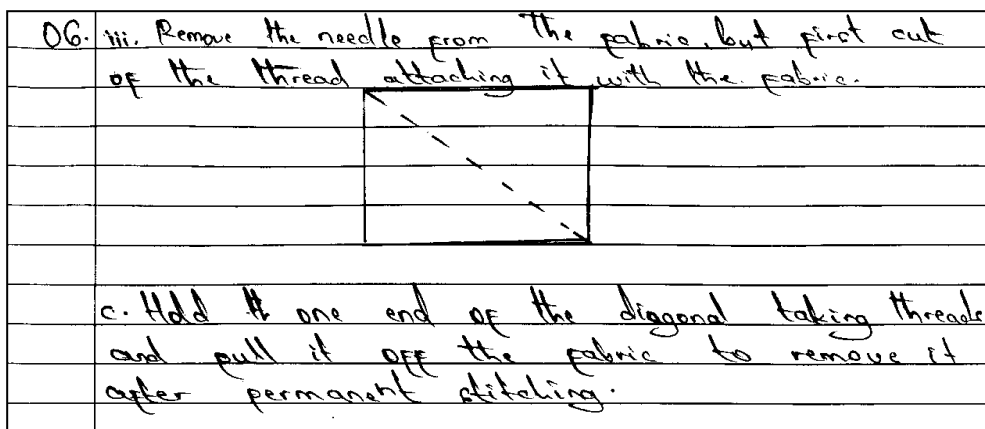 06. iii. Remove the needle from the fabric, but first cut
of the thread attaching it with the fabric.
c. Hold one end of the diagonal taking threads
and pull it off the fabric to remove it
after permanent stitching.